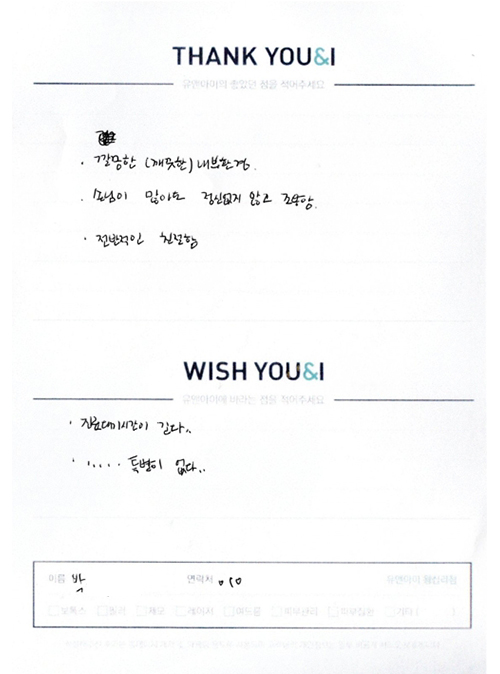 THANK YOU&I
유앤아이의 좋았던 점을 적어주세요
· 깔끔한 (깨끗한) 내부환경.
· 손님이 많아도 정신없지 않고 조용함.
· 전반적인 친절함
WISH YOU&I
유앤아이에 바라는 점을 적어주세요
· 진료대기시간이 길다..
· ..... 특별히 없다..
이름 박 연락처 010 유앤아이 웰컴라점
보톡스 필러 제모 레이저 여드름 피부관리 기타 ( )